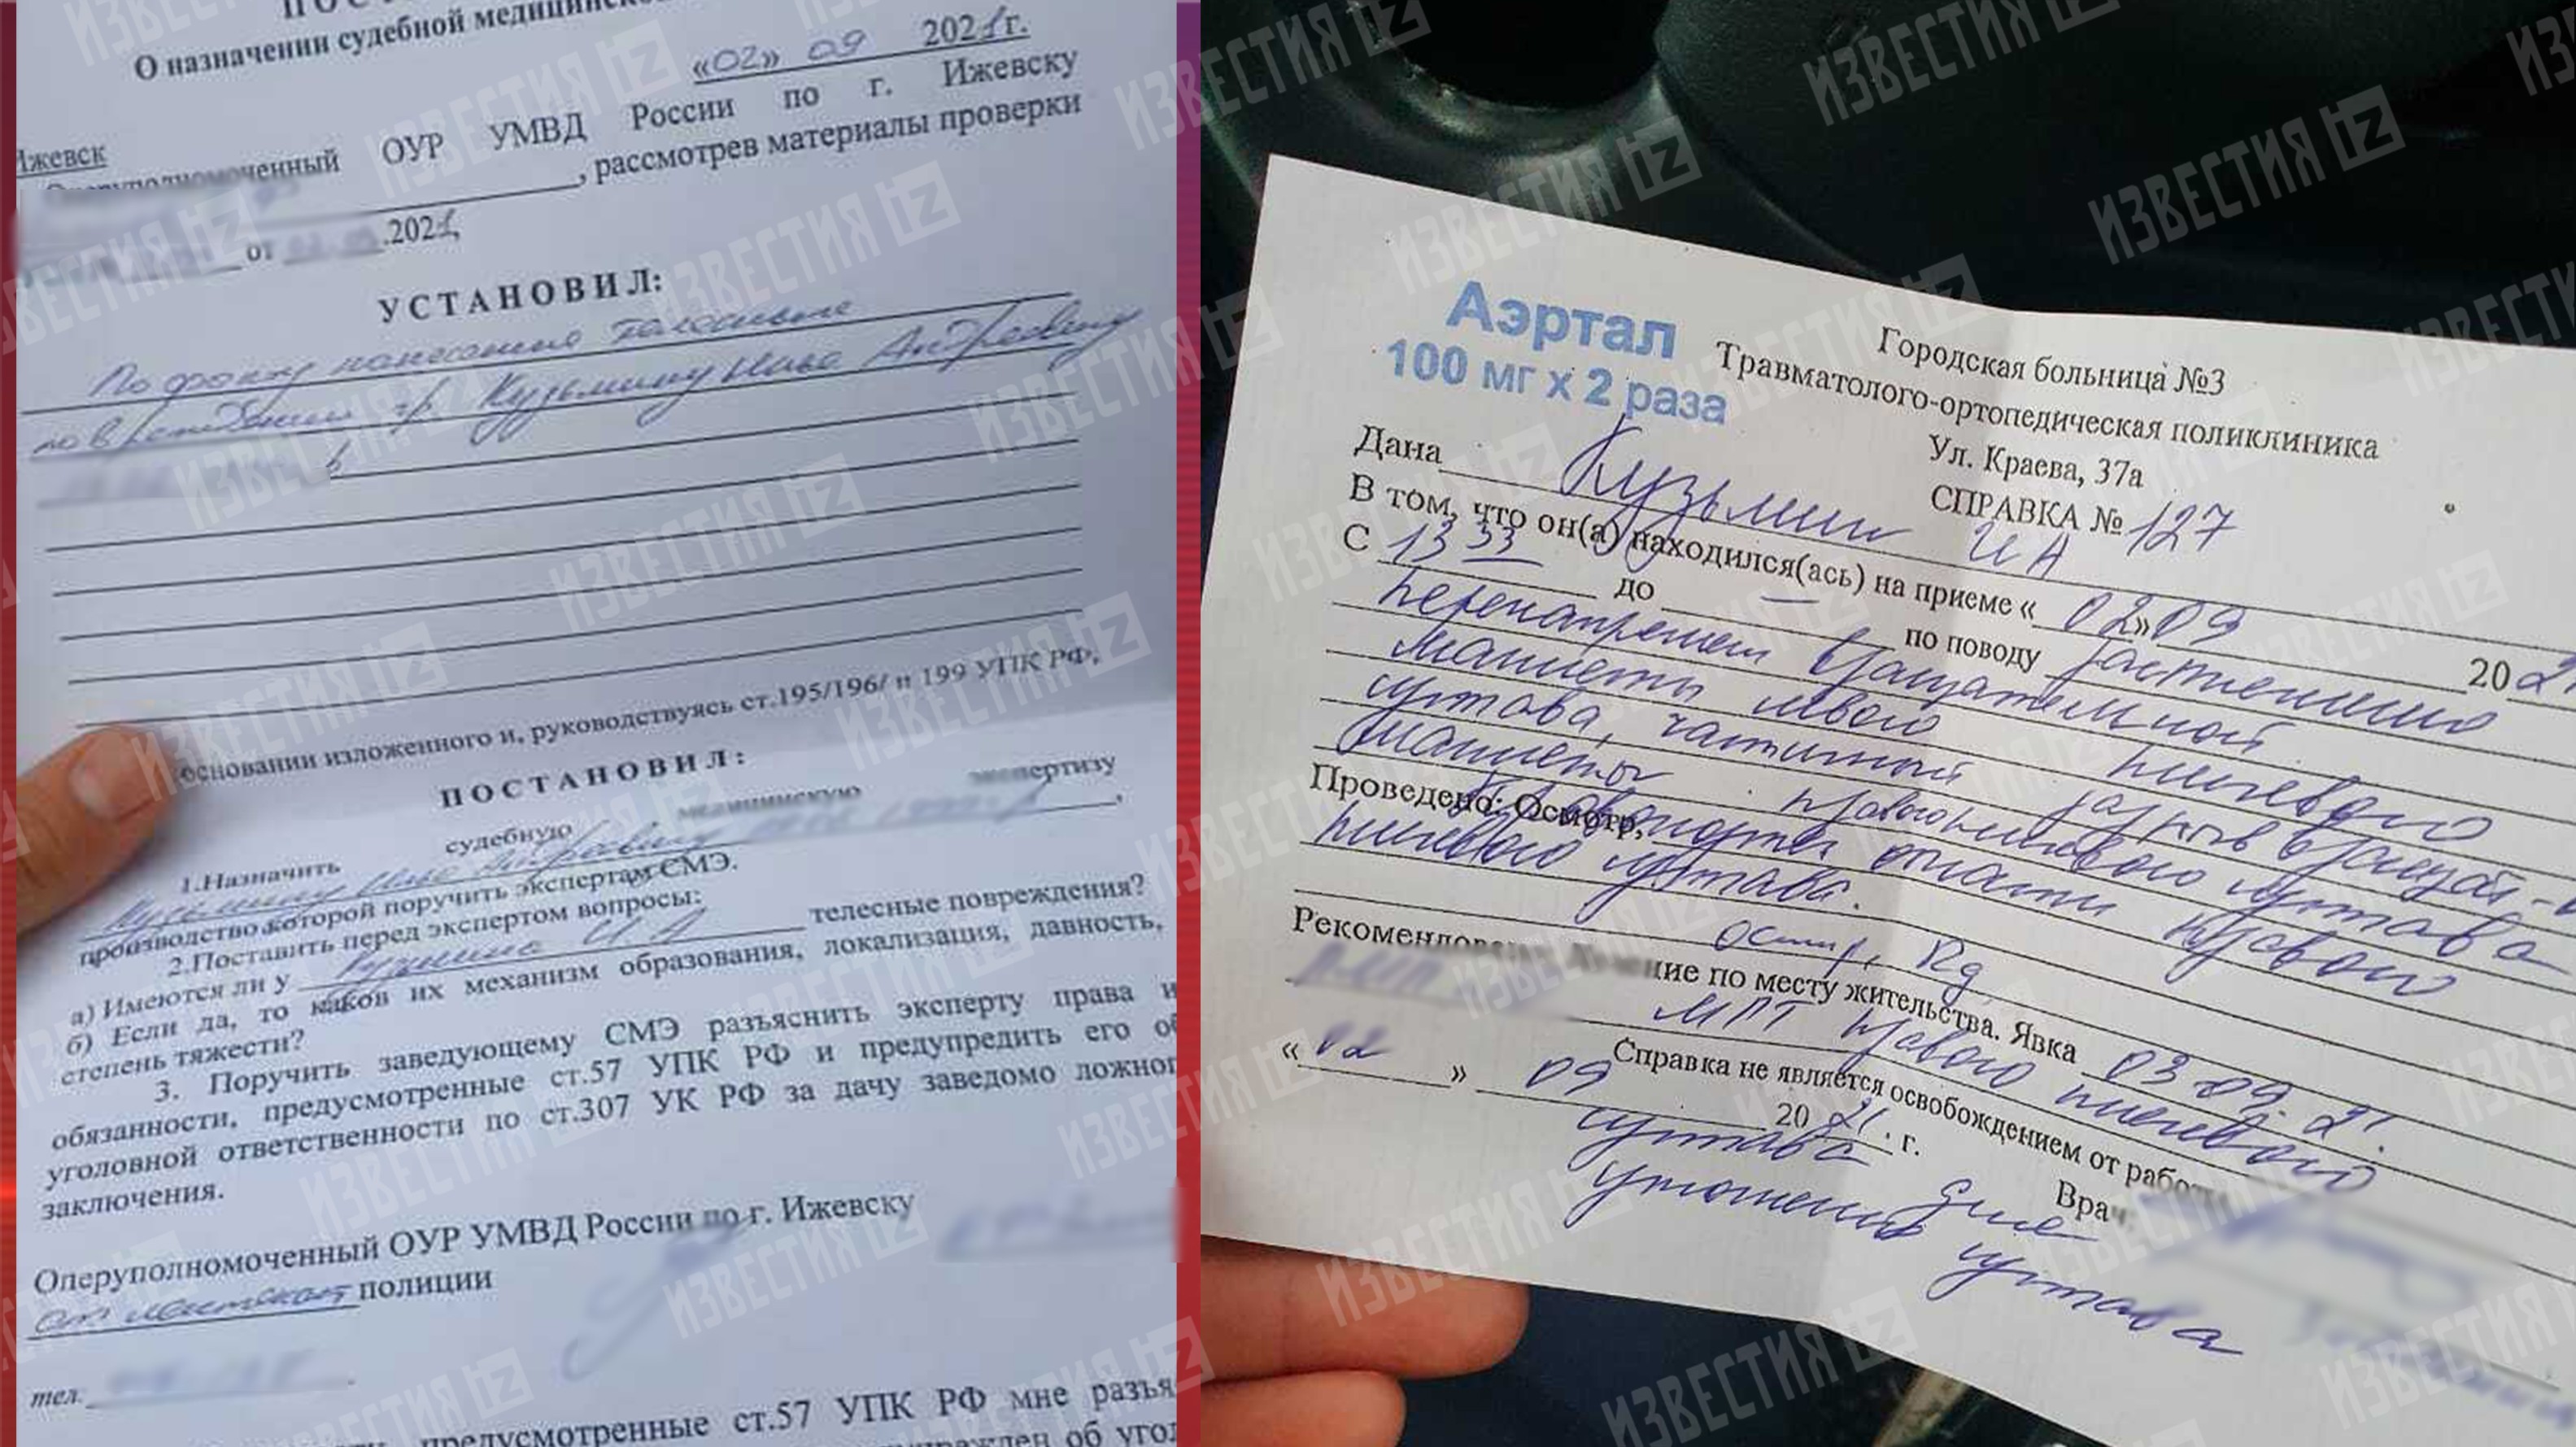 О назначении судебной
«02» 09 2021г.
Ижевск
Оперуполномоченный ОУР УМВД России по г. Ижевску
, рассмотрев материалы проверки
от .2021,
УСТАНОВИЛ:
По факту нанесения телесных
повреждений гр. Кузьмину Илье Андреевичу
в
основании изложенного и, руководствуясь ст.195/196/ и 199 УПК РФ,
ПОСТАНОВИЛ:
1.Назначить судебную медицинскую экспертизу
Кузьмину Илье Андреевичу
,
производство которой поручить экспертам СМЭ.
2.Поставить перед экспертом вопросы:
а) Имеются ли у Кузьмина И А телесные повреждения?
б) Если да, то каков их механизм образования, локализация, давность,
степень тяжести?
3. Поручить заведующему СМЭ разъяснить эксперту права и
обязанности, предусмотренные ст.57 УПК РФ и предупредить его об
уголовной ответственности по ст.307 УК РФ за дачу заведомо ложного
заключения.
Оперуполномоченный ОУР УМВД России по г. Ижевску
полиции
тел.
предусмотренные ст.57 УПК РФ мне разъя
об уго
Аэртал
100 мг х 2 раза
Городская больница №3
Травматолого-ортопедическая поликлиника
Ул. Краева, 37а
СПРАВКА № 127
Дана Кузьмин И А
В том, что он(а) находился(ась) на приеме « 02» 09 2021
С 13 33 до — по поводу растяжения
вращательной
манжеты левого плечевого
сустава, частичный разрыв вращат-
манжеты правого плечевого сустава
Проведено: Осмотр,
области правого
плечевого сустава.
осмотр, Rg
Рекомендовано: Лечение по месту жительства. Явка 03 09. 21.
МРТ правого плечевого
Справка не является освобождением от работы
« 02 » 09 20 21. г.
сустава для
Врач:
уточнения
сустава
ИЗВЕСТИЯ iz